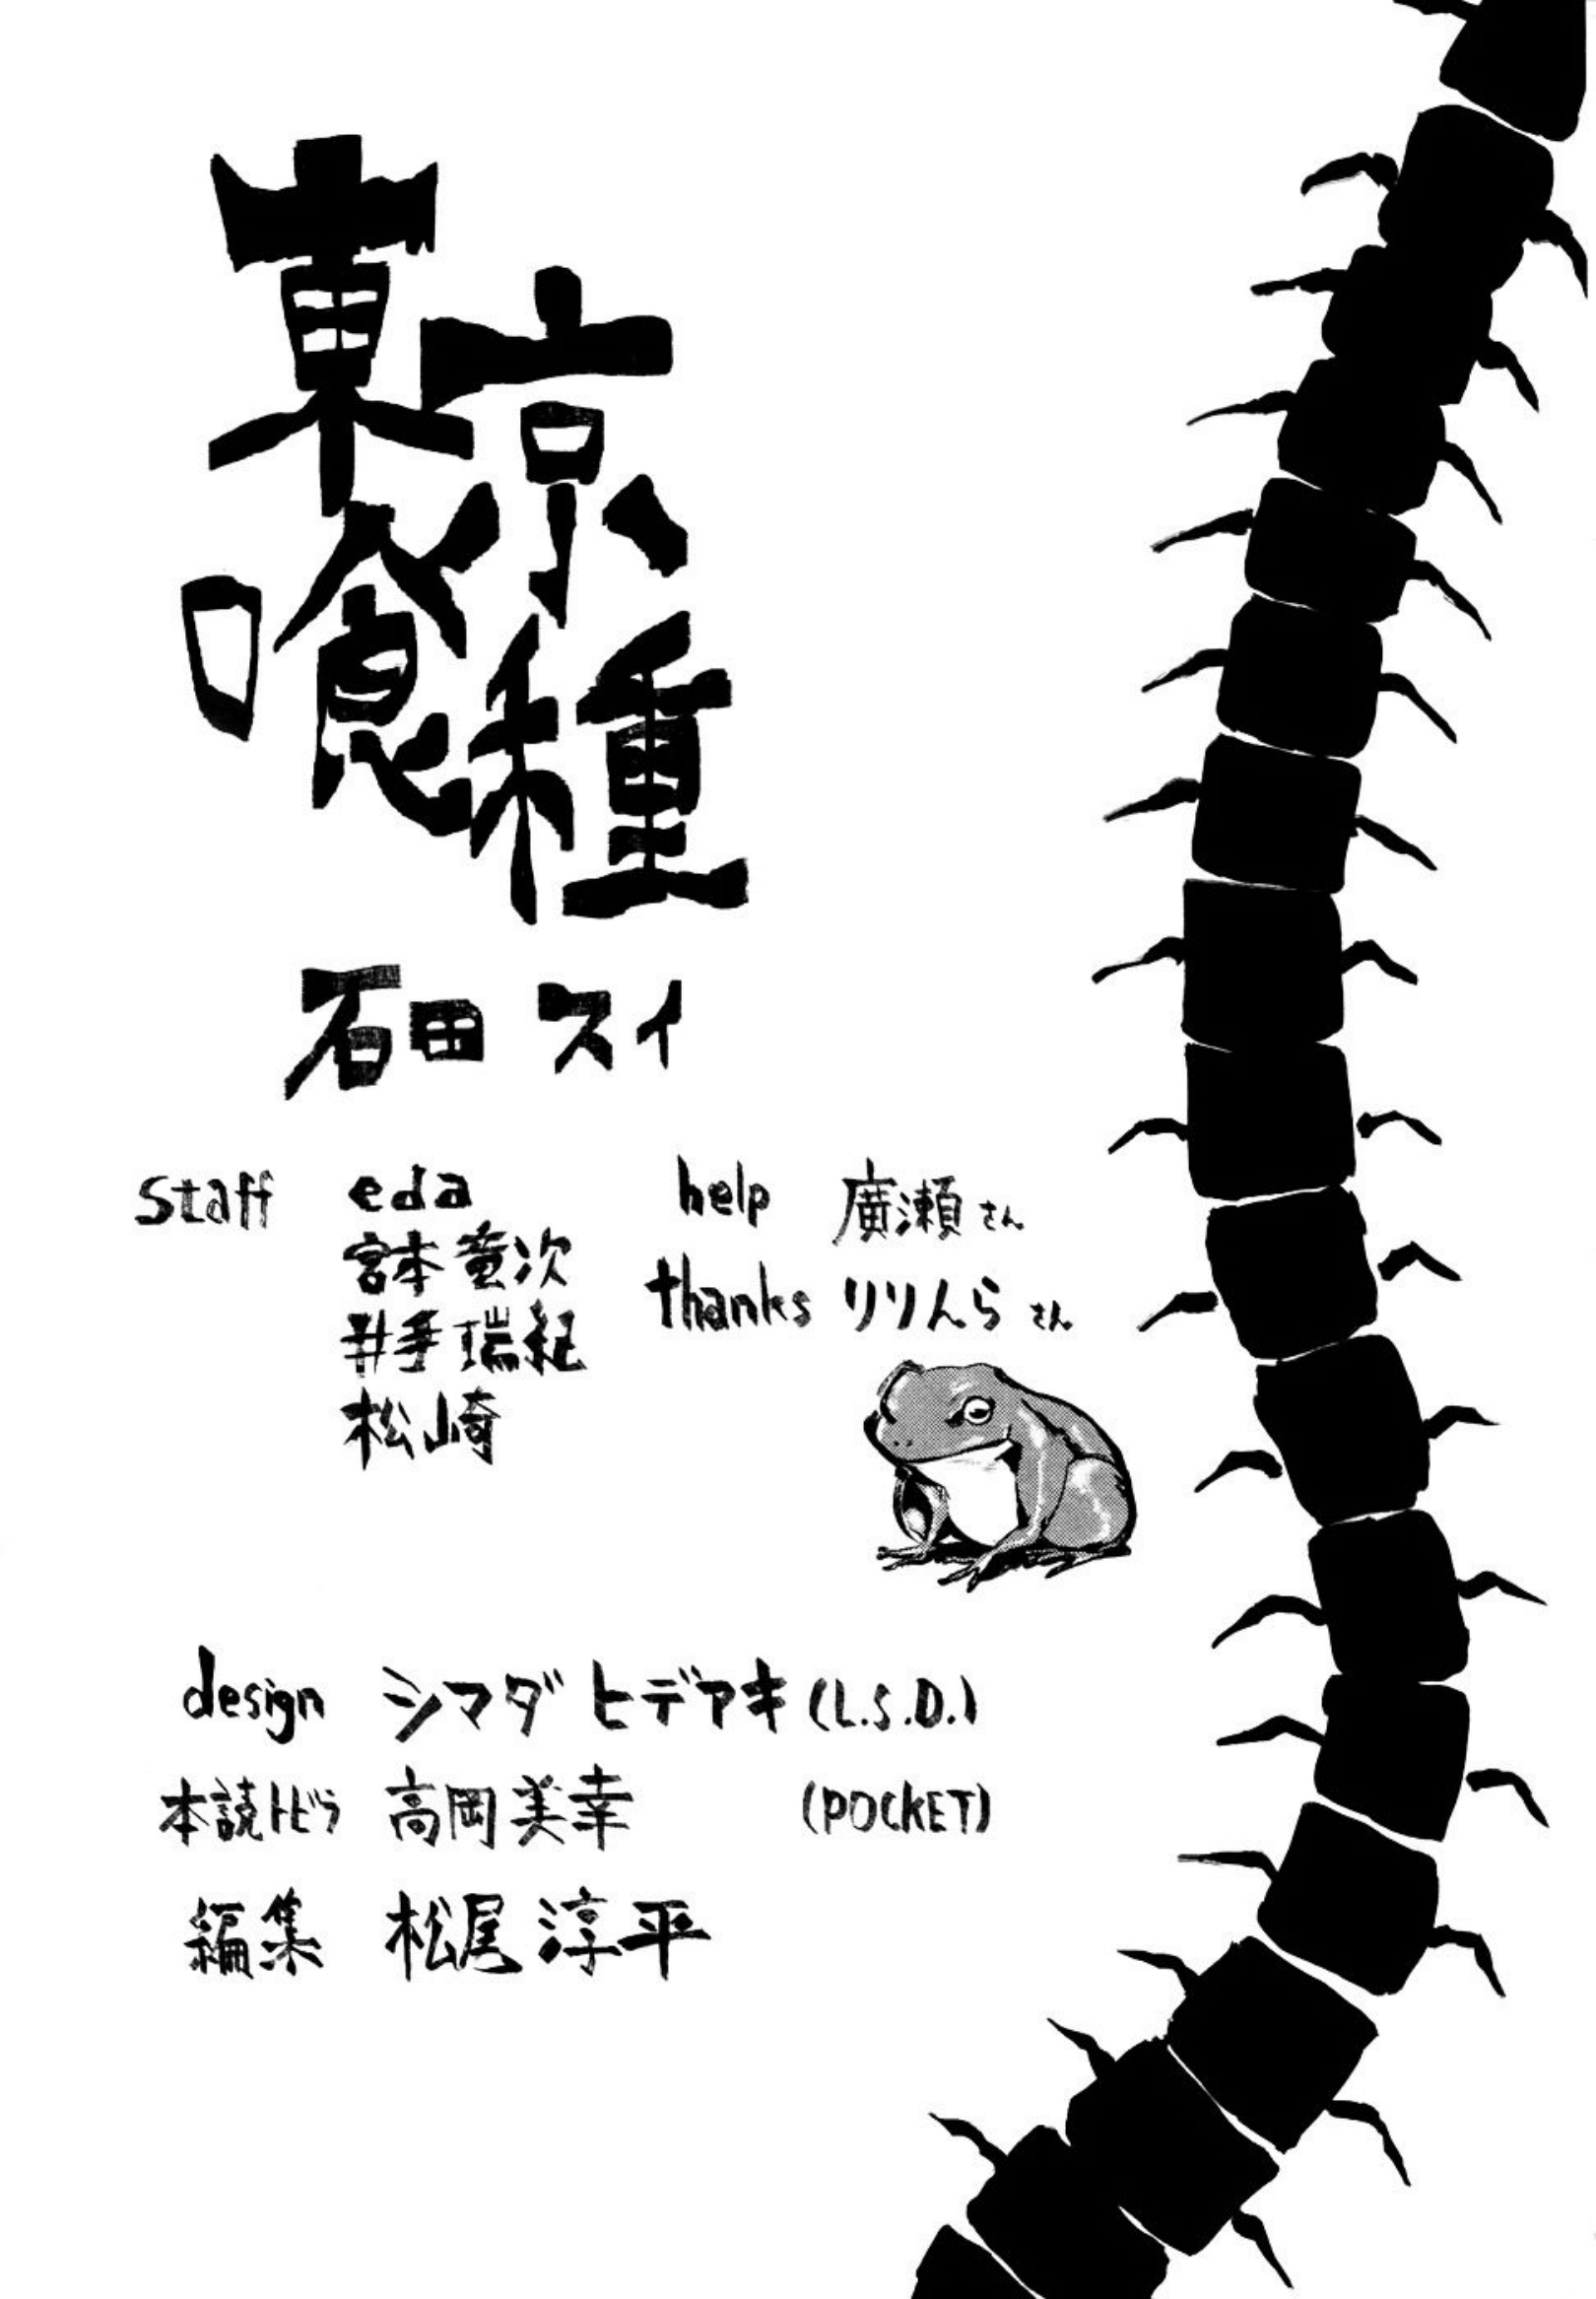 東京
喰種
石田 スイ
staff eda
宮本 竜次
井手 瑞紀
松崎
help 廣瀬さん
thanks リリんらさん
design シマダ ヒデアキ (L.S.D.)
本読トビラ 高岡美幸 (POCKET)
編集 松尾淳平